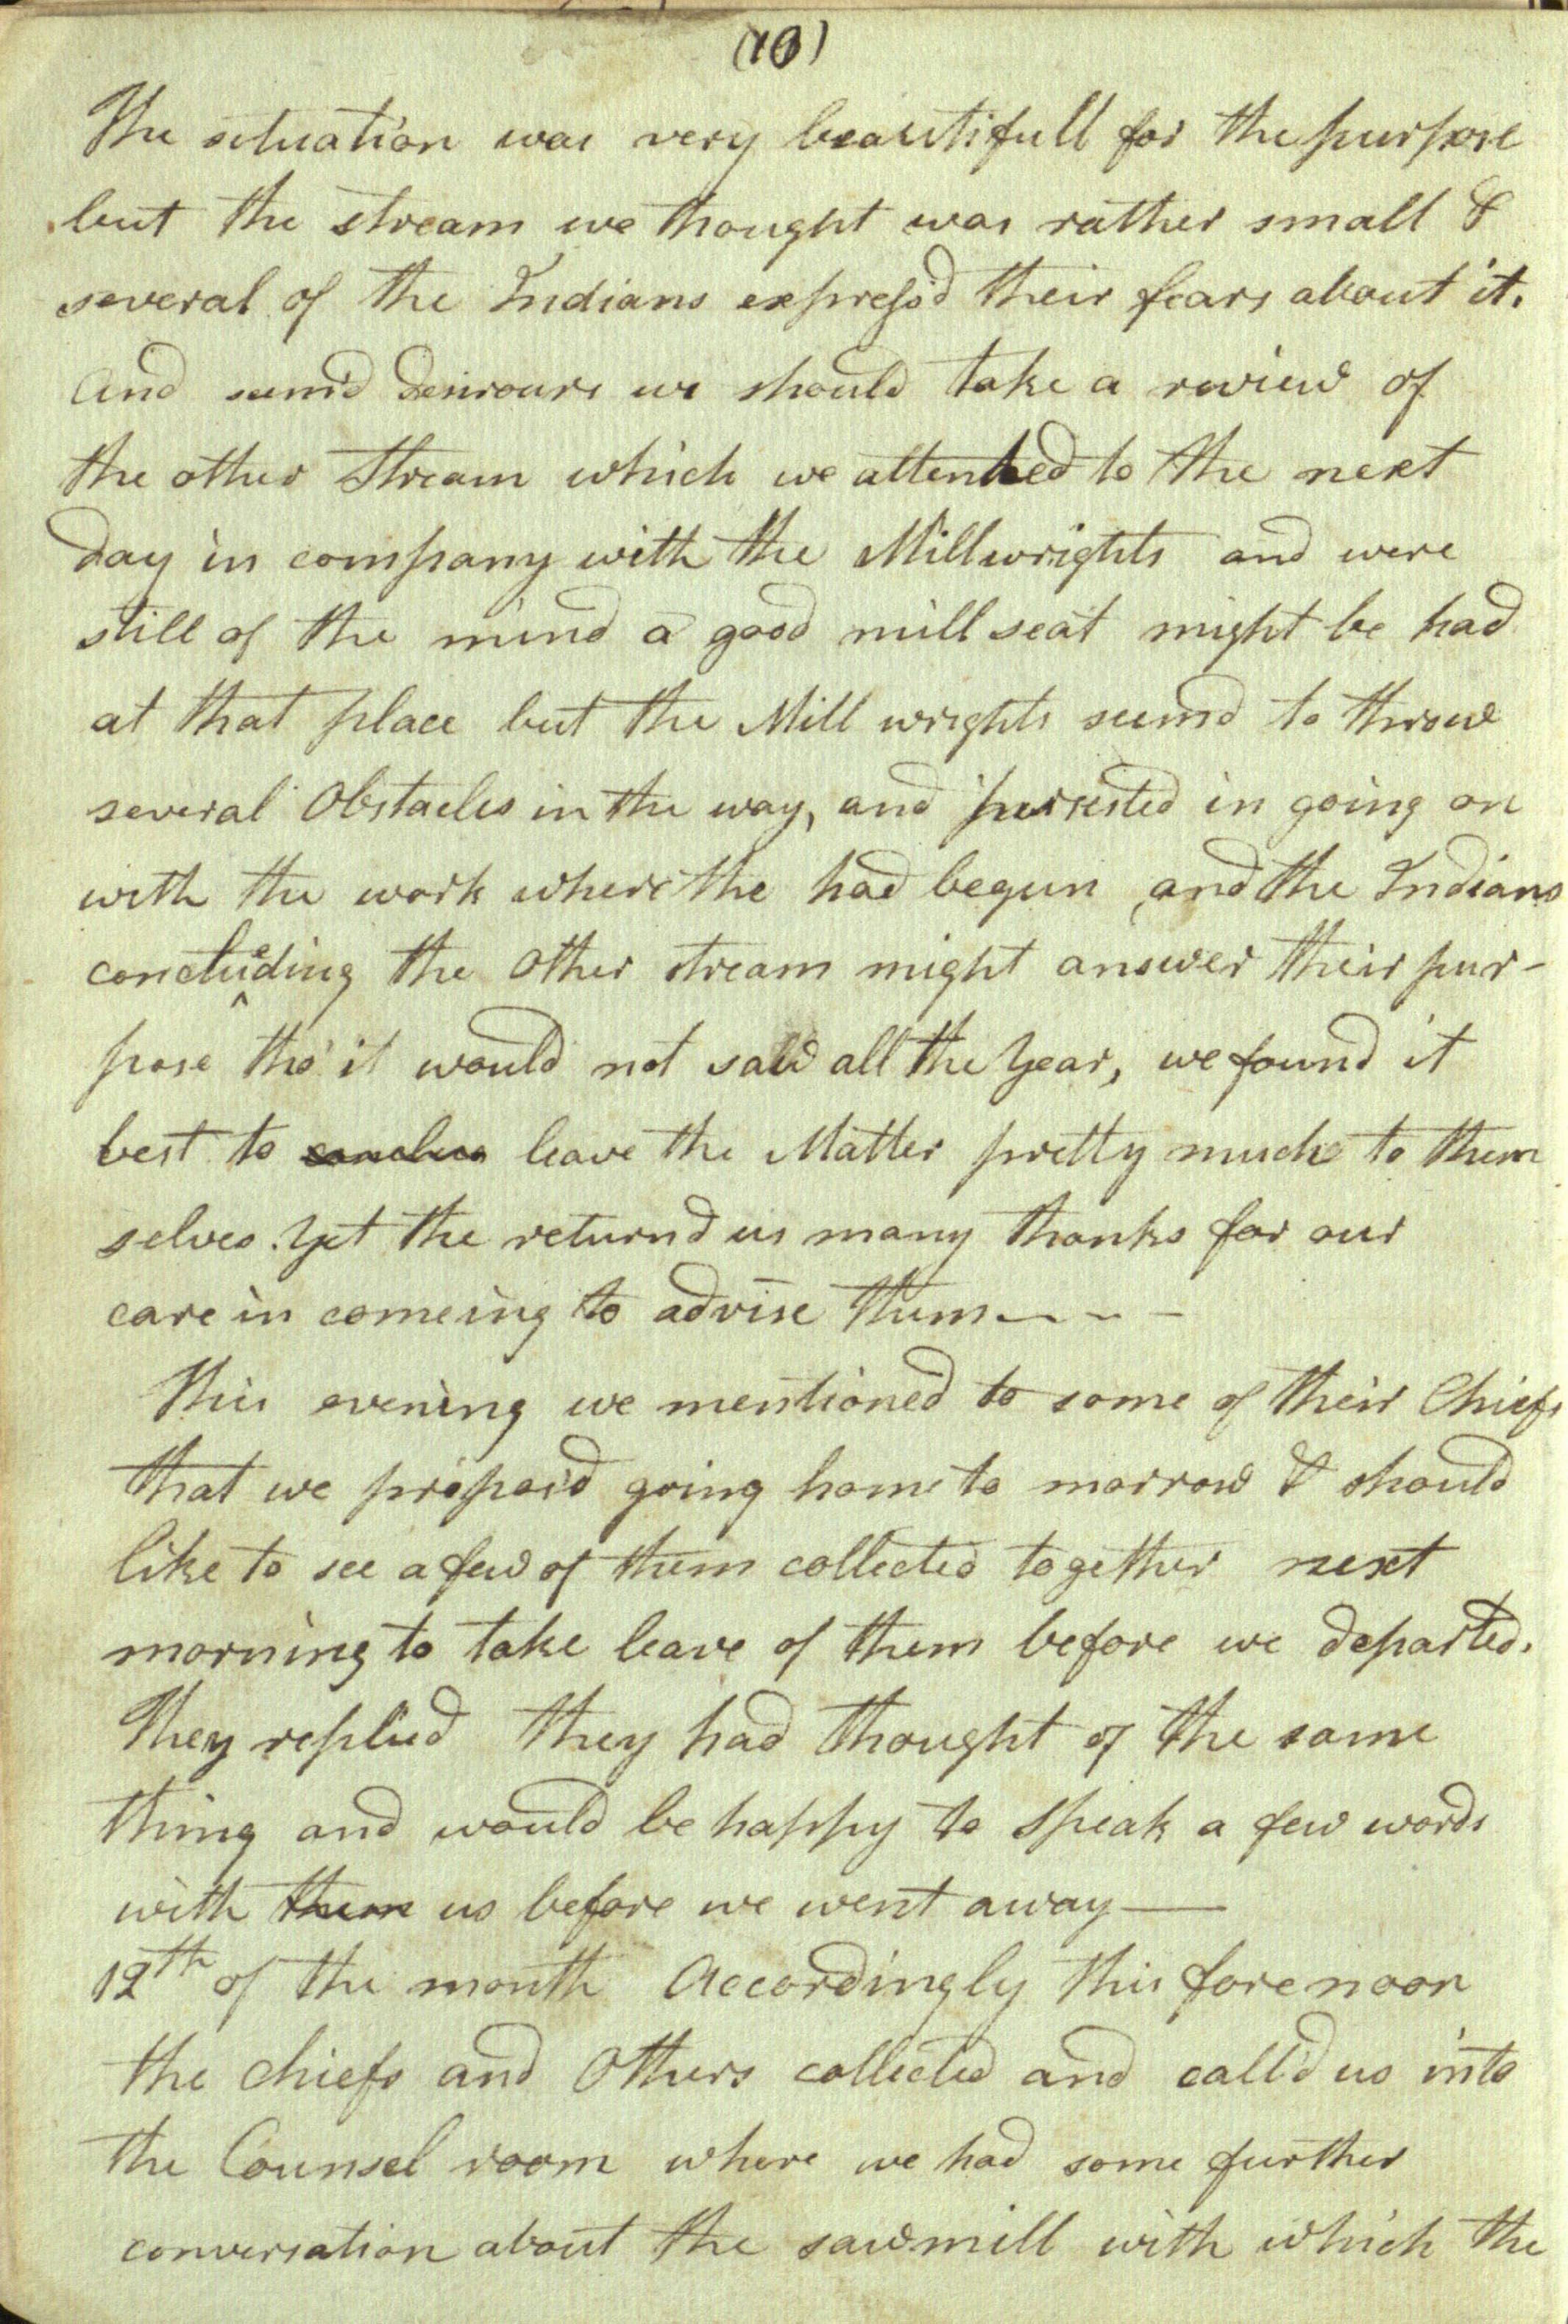 (10)
The situation was very beautifull for the purpose
but the stream we thought was rather small &
several of the Indians express'd their fears about it.
and seem'd desirours we should take a review of
the other Stream which we attended to the next
day in company with the Millwrights and were
still of the mind a good mill seat might be had
at that place but the Mill wrights seem'd to throw
several Obstacles in the way, and persisted in going on
with the work where the had begun and the Indians
concluding the other stream might answer their pur-
pose tho' it would not saw all the Year, we found it
best to leave the Matter pretty much to them
selves. Yet the return'd us many thanks for our
care in comeing to advise them - - -
This evening we mentioned to some of their Chiefs
that we propos'd going home to morrow & should
like to see a few of them collected together next
morning to take leave of them before we departed.
They replied they had thought of the same
thing and would be happy to speak a few words
with them us before we went away —
12th of the month Accordingly this fore noon
the chiefs and Others collected and call'd us into
the Counsel room where we had some further
conversation about the sawmill with which the